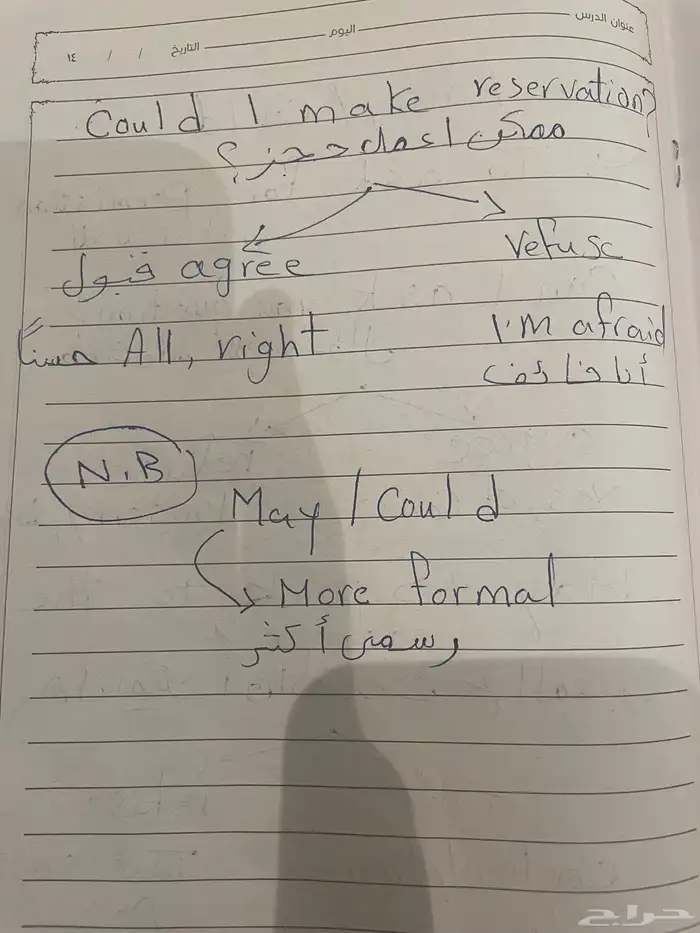 عنوان الدرس اليوم التاريخ / / ١٤
Could I make reservation?
ممكن اعمل حجز؟
قبول agree refuse
حسناً All, right I'm afraid
أنا خائف
N.B
May / Could
More formal
رسمى أكثر
حراج